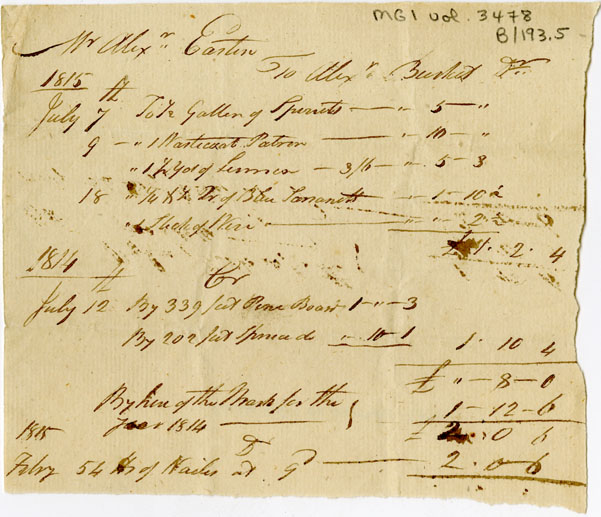 MG1 Vol. 3478
B/193.5
Mr Alexr Easten
To Alexr Burket Dr
1815
July 7th To ½ Gallen of Sperrets — " 5 — "
9 — " 1 Wastecoat Patron — " 10 — "
" 1½ Yds of Linnen — 3/6 — " 5 — 3
18 " ¼ & ⅛ Yr of Blue — " 1 — 10½
" 1 Stick of — " " 2½
£ 1 . 2 . 4
1814 Cr
July 12th By 339 feet Pine Board 1 — " — 3
By 202 feet Spreuds " 10 1 1 . 10 4
£ " — 8 — 0
By hire of the for the
Year 1814 — 1 — 12 — 6
£ 2 . 0 6
1815
Febry 5 4 lbs of Nailes at 9d — 2 . 0 6